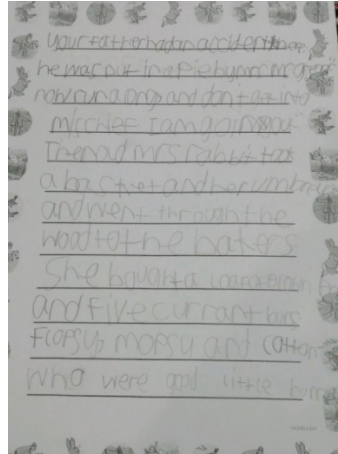 your father had an accident there
he was put in a pie by mrs mc gregor
now run along and don't get into
mischief I am going out
Then old mrs rabbit took
a basket and her umbrella
and went through the
wood to the bakers
She bought a loaf of brown b
and five currant buns
Flopsy, mopsy and cotton
who were good little bunn